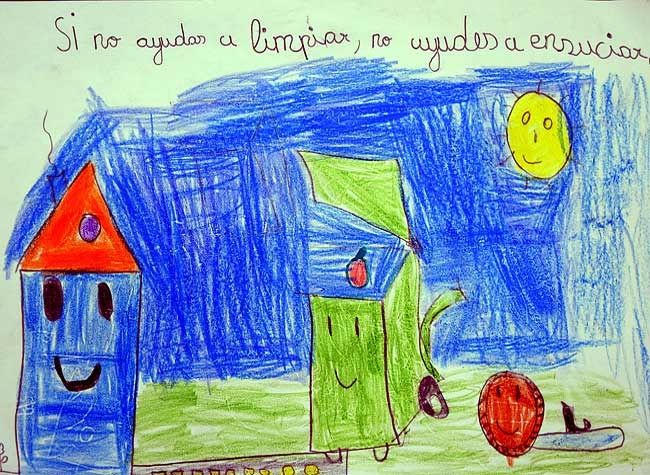 Si no ayudas a limpiar, no ayudes a ensuciar.